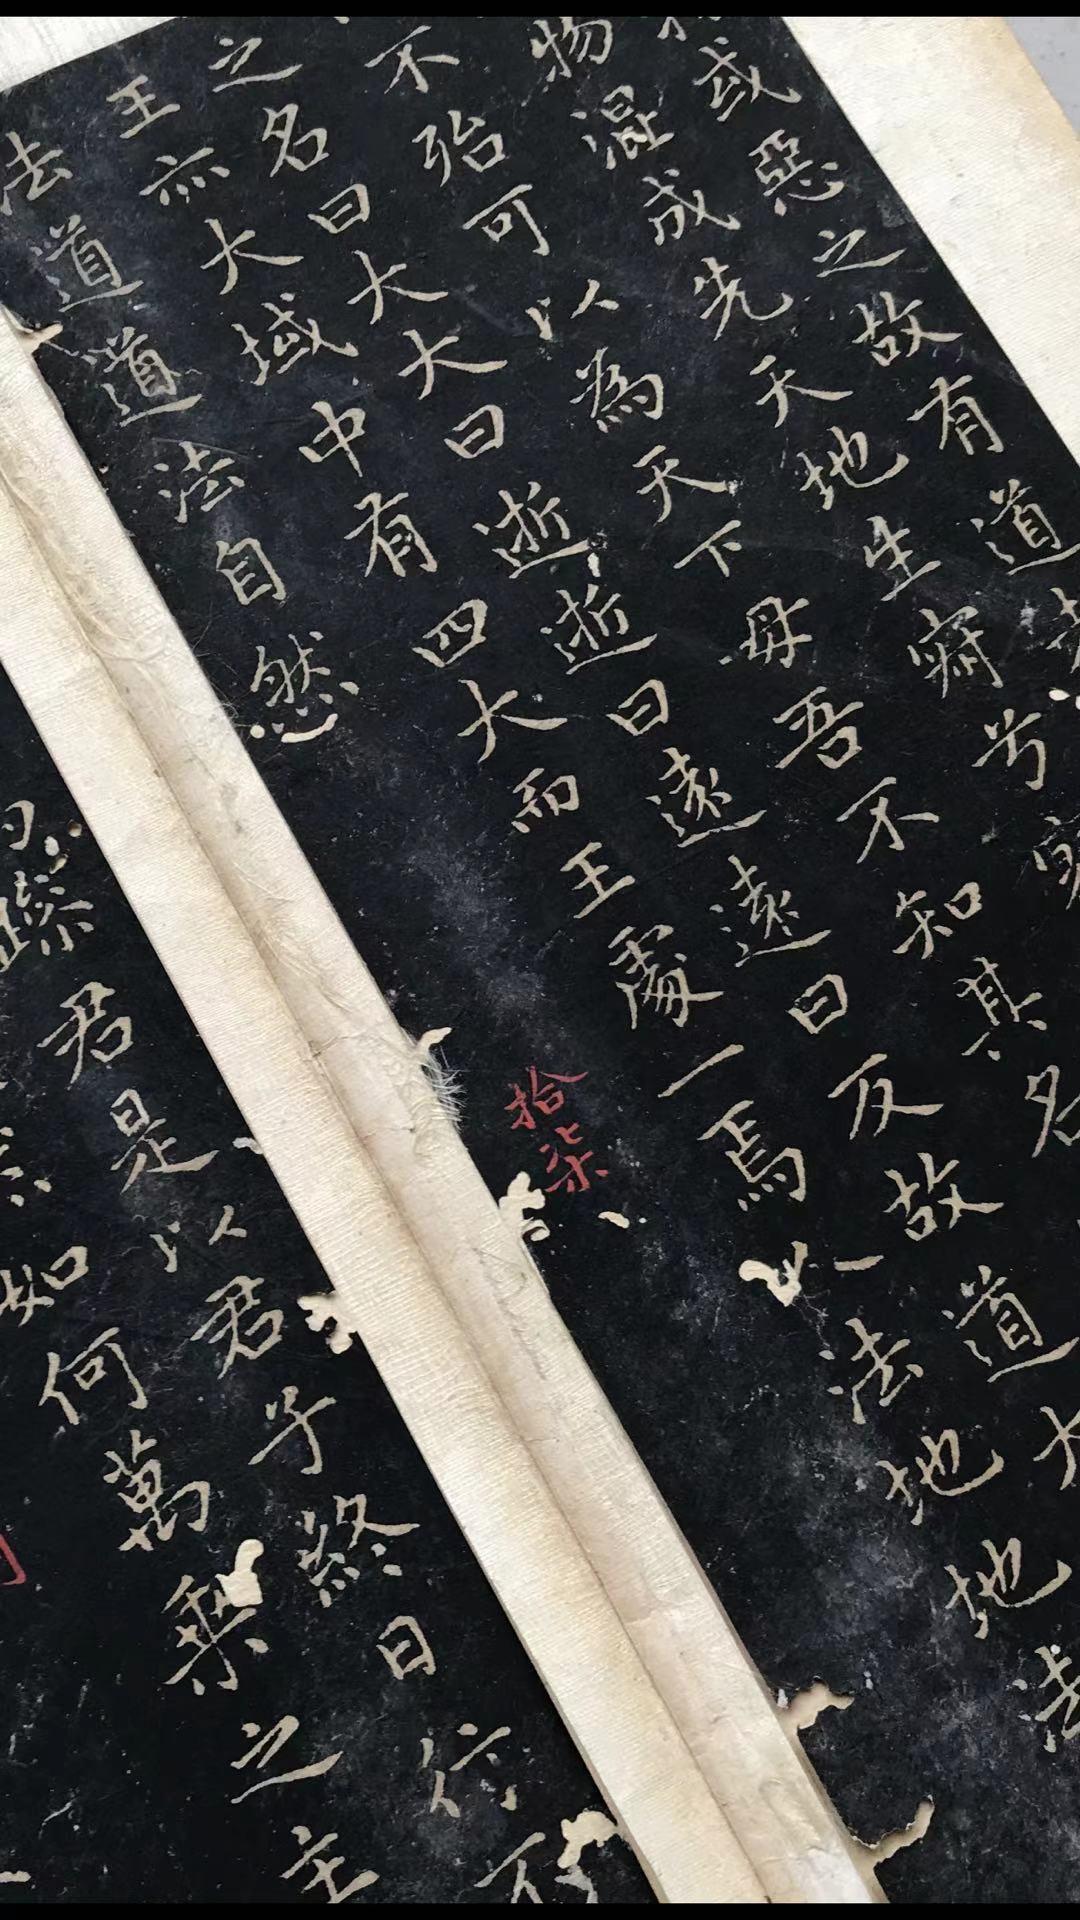 或惡之故有道者
物混成先天地生寂兮寞
不殆可以為天下母吾不知其名
之名曰大大曰逝逝曰遠遠曰反故道大
王亦大域中有四大而王處一焉人法地地法
法道道法自然
拾柒
躁君是以君子終日行不
然如何萬乘之主